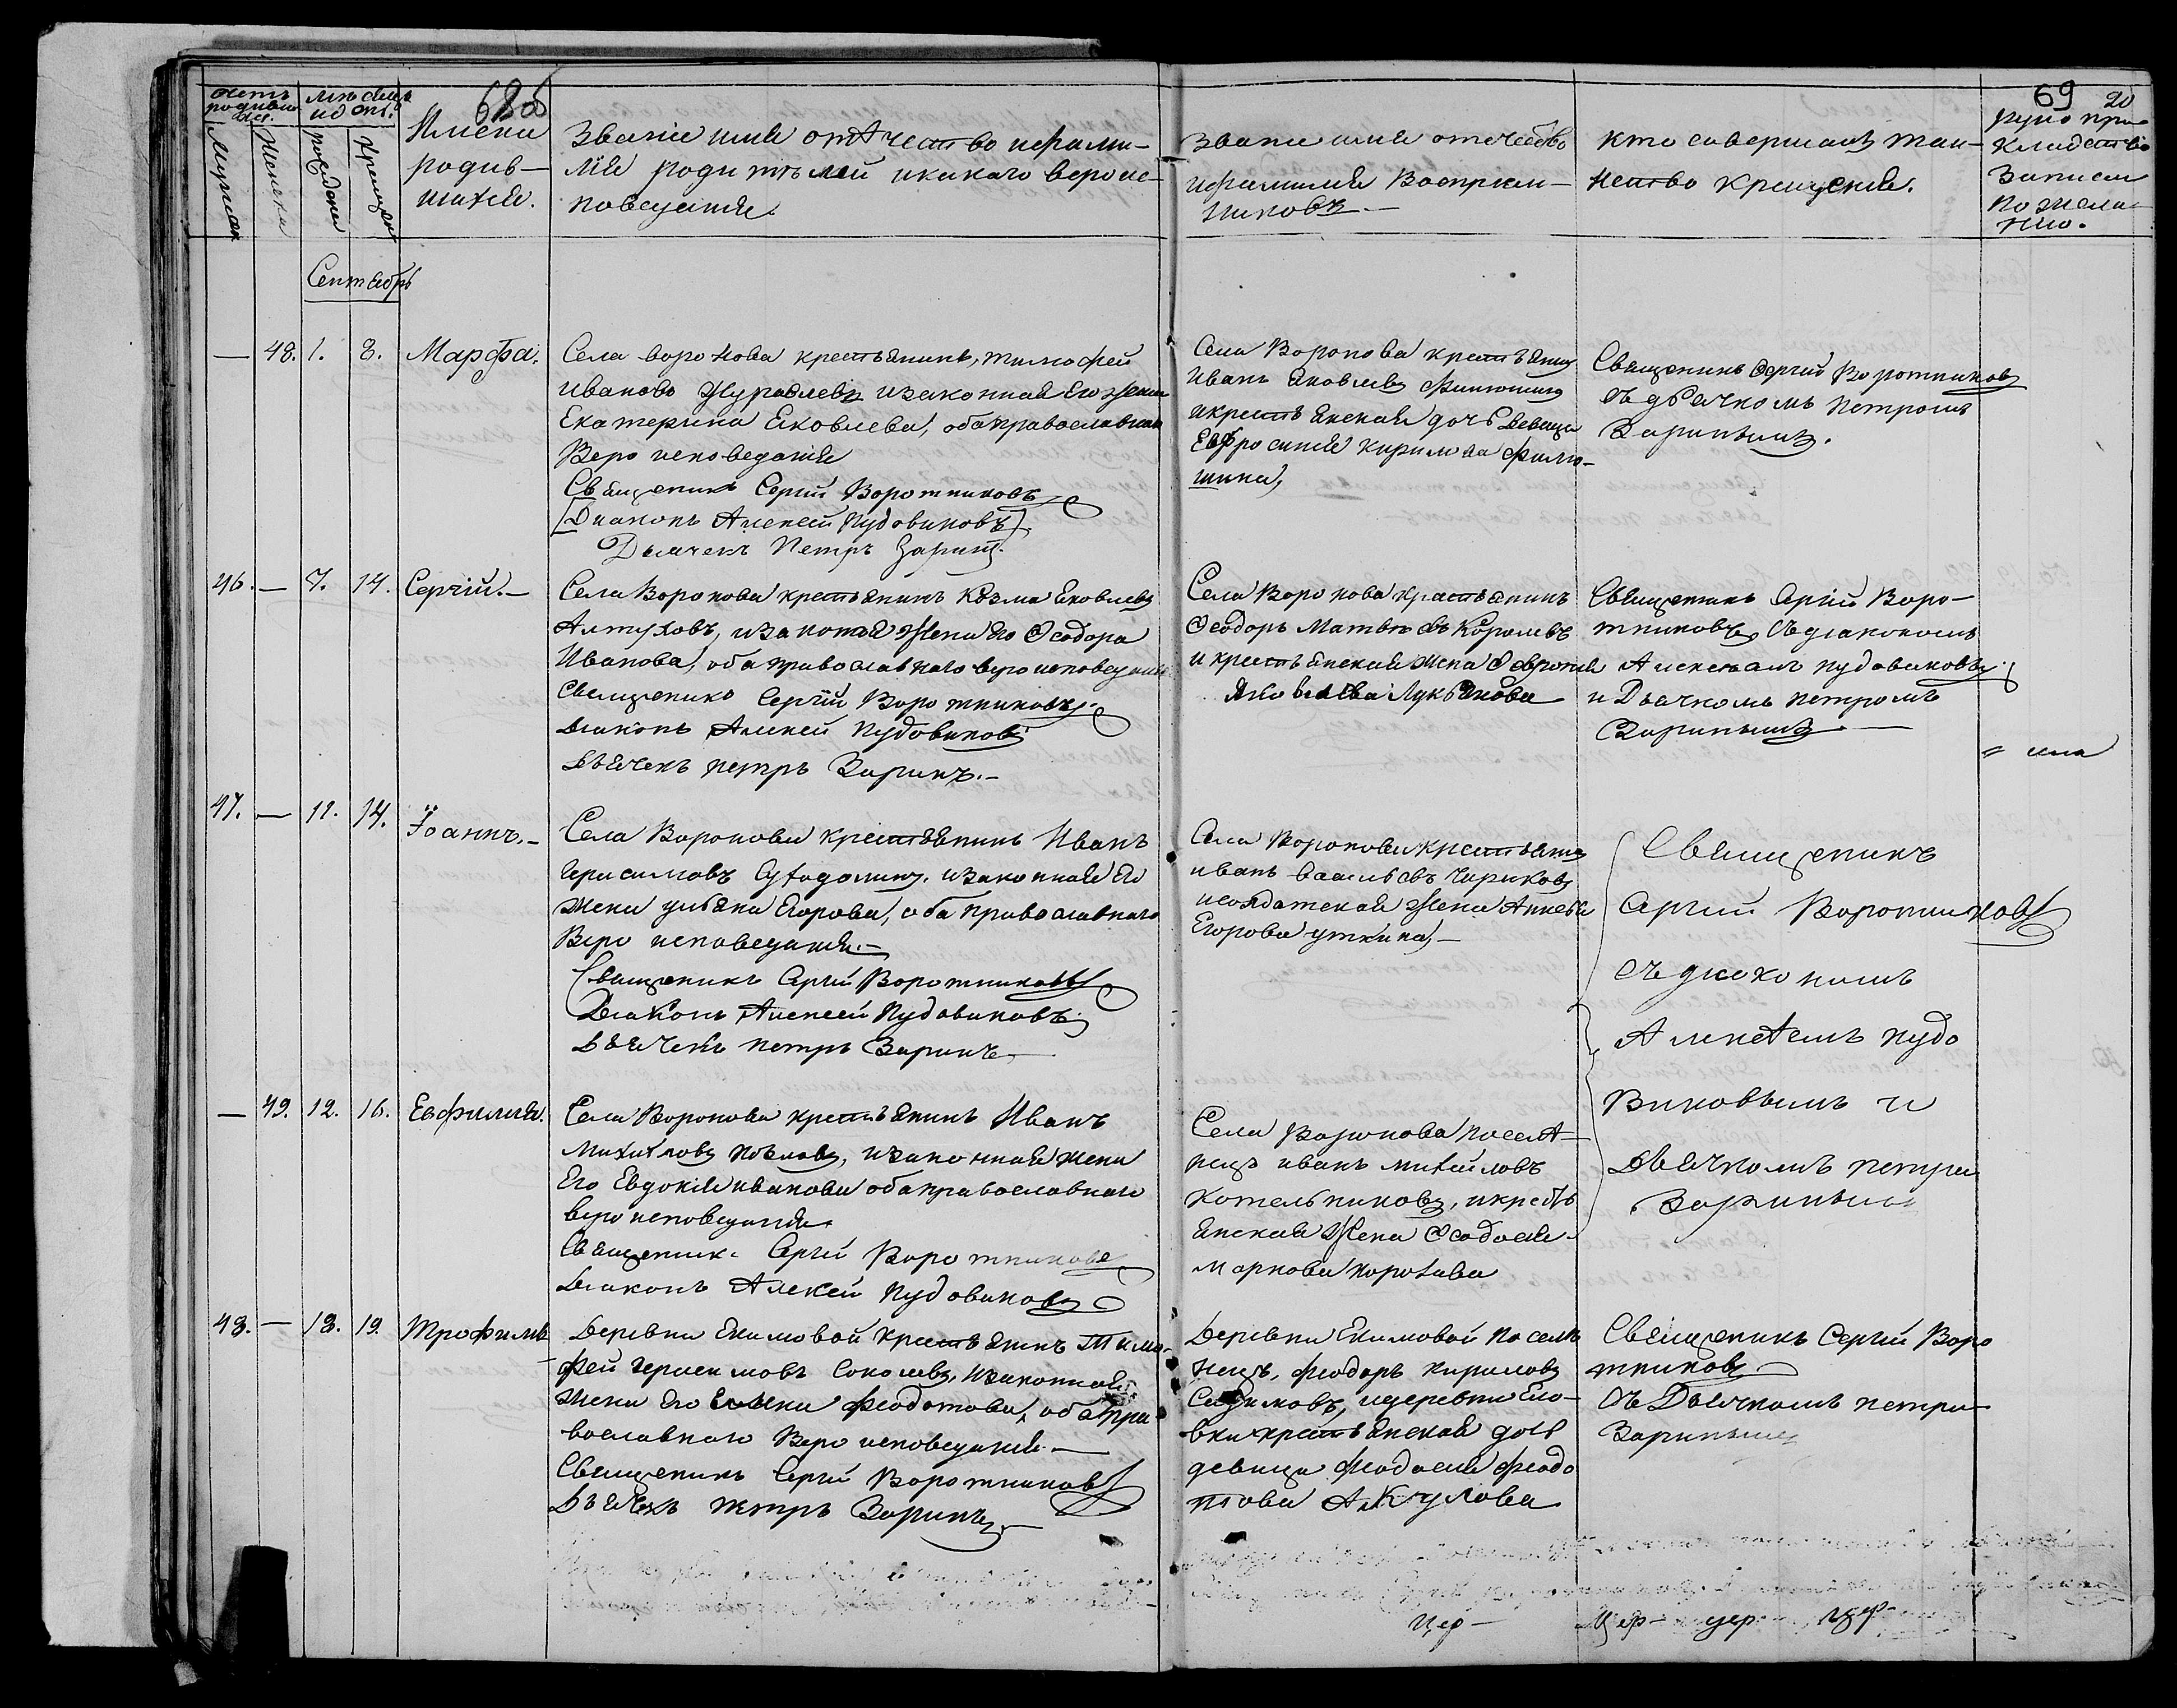 68об
69
20
Счетъ родивших.
Мужеск
Женска
Мѣсяцъ и д ень.
рождения
Крещения
Имена
родив-
шихся.
Звание имя отчество и фами-
лия родителей и какаго вероис-
поведения.
Звание имя отечество
и фамилия Восприем-
никовъ.
Кто совершалъ таи-
нство крещения.
руко при-
кладство
Записи
по жела-
нию.
Сентябрь
— 48. 1. 8. Марфа.
Села воронова крестьянинъ, тимофей
ивановъ Журавлевъ изаконная Его жена
Екатерина Яковлева, оба православнаго
Веро исповедания
Священникъ Сергий Воротниковъ
Диаконъ Алексей Пудовиковъ
Дьячекъ Петръ Заринъ.
Села Воронова крестьянинъ
Иванъ Яковлевъ Филюшинъ
и крестьянская дочь девица
Евфросиния Кирилова Филю-
шина,
Священникъ Сергий Воротниковъ
съ дьячкомъ петромъ
Заринымъ.
46. — 7. 14. Сергий.—
Села Воронова крестьянинъ Козма Яковлевъ
Алтуховъ, изаконная жена его Феодора
Иванова, оба православнаго вероисповедания
Священникъ Сергий Воротниковъ
Диаконъ Алексей Пудовиковъ
Дьячекъ петръ Заринъ.—
Села Воронова крестьянинъ
Феодоръ Матвеевъ Королевъ
и крестьянская жена Феврония
Яковлева Лукьянова
Священникъ Сергий Воро-
тниковъ, съ диакономъ
Алексеемъ пудовиковымъ
и Дьячкомъ петромъ
Заринымъ
47. — 11. 14. Іоаннъ.—
Села Воронова крестьянинъ Иванъ
Герасимовъ изаконная Его
жена ульяна Егорова, оба православнаго
Веро исповедания.—
Священникъ Сергий Воротниковъ
Диаконъ Алексей Пудовиковъ
Дьячекъ петръ Заринъ
Села Воронова крестьянинъ
иванъ Васильевъ Чириковъ
и солдатская жена
Егорова уткина,—
Священникъ
Сергий Воротниковъ
съ диакономъ
Алексеемъ пудо
виковымъ и
Дьячкомъ петром
Зариным
— 49. 12. 16. Евфимия.
Села Воронова крестьянинъ Иванъ
Михайловъ изаконная жена
Его Евдокия иванова оба православнаго
веро исповедания
Священникъ Сергий Воротниковъ
Диаконъ Алексей Пудовиковъ
Села Воронова поселя-
нецъ иванъ михайловъ
Котельниковъ, и кресть
янская жена Феодосия
Маркова
48. — 18. 19. Трофимъ
Деревни Екимовой крестьянинъ Тимо-
фей Герасимовъ Соколовъ, изаконная
жена его Феодотова, оба пра-
вославнаго Веро исповедания.—
Священникъ Сергий Воротниковъ
Дьячекъ петръ Заринъ.—
Деревни Екимовой поселя
нецъ, феодоръ Кириловъ
и деревни Ело-
вки крестьянская дочь
девица феодосия феодо
това Акулова
Священникъ Сергий Воро
тниковъ
съ Дьячкомъ петром
Зариным
Цер— Цер— цер— цер—